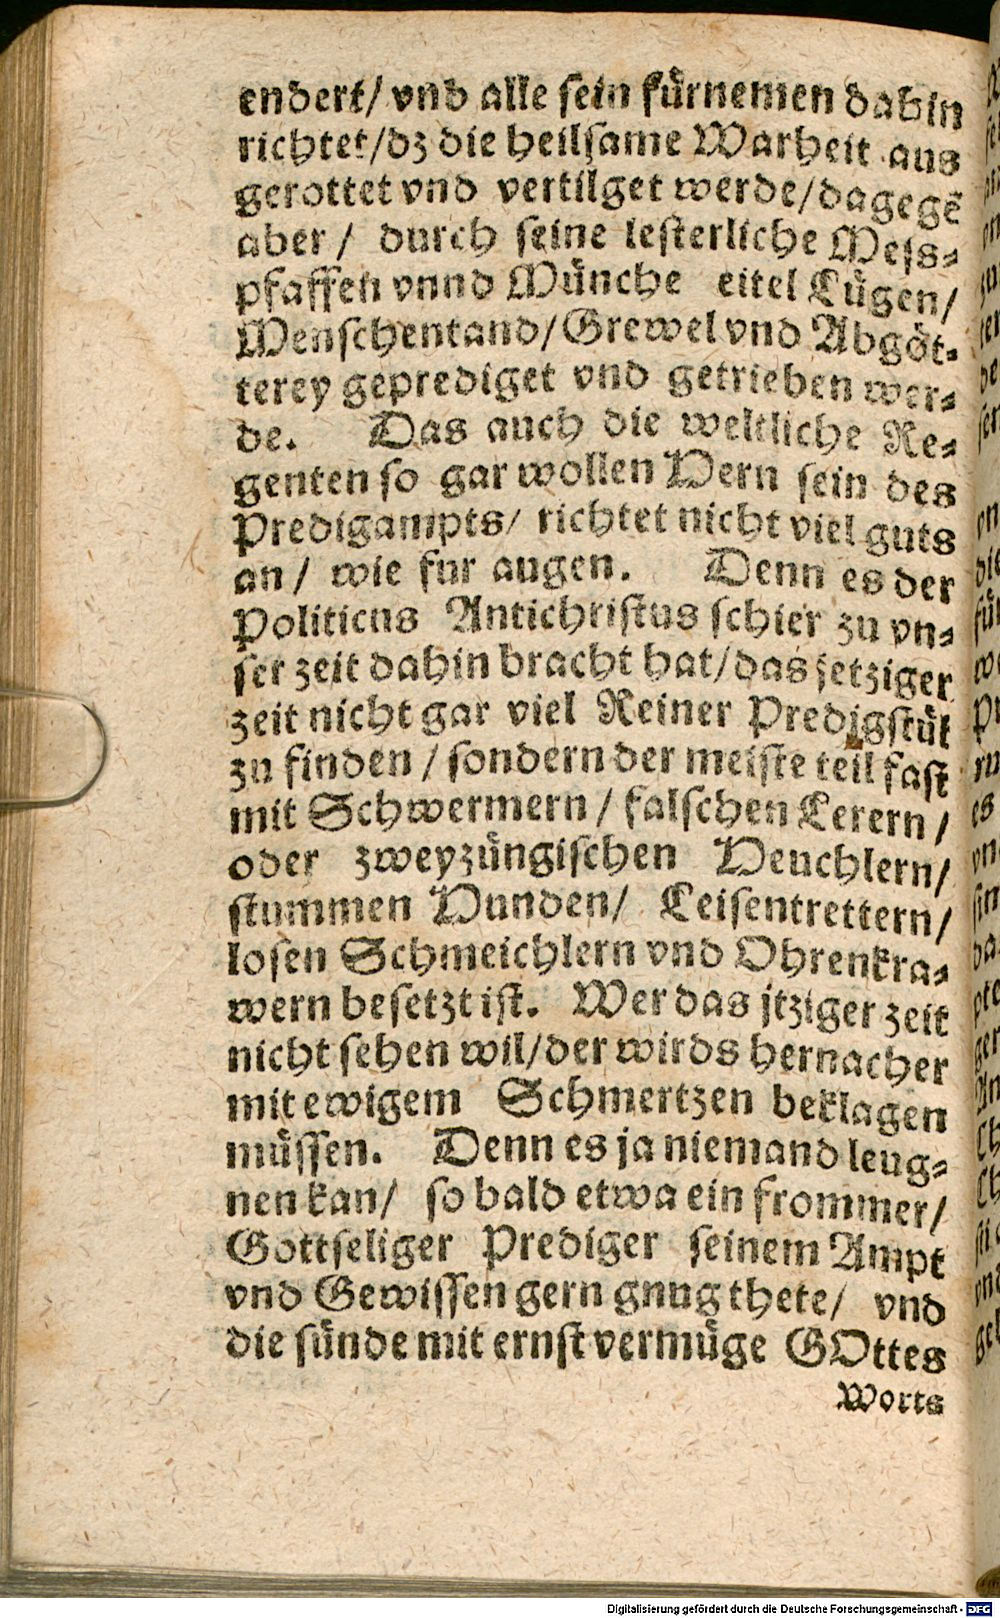 endert/ vnd alle sein fürnemen dahin
richtet/dz die heilsame Warheit aus
gerottet vnd vertilget werde/dagegē
aber/ durch seine lesterliche Mess-
pfaffen vnnd Münche eitel Lügen/
Menschentand/Grewel vnd Abgöt-
terey geprediget vnd getrieben wer-
de. Das auch die weltliche Re-
genten so gar wollen Hern sein des
Predigampts/ richtet nicht viel guts
an/ wie fur augen. Denn es der
Politicus Antichristus schier zu vn-
ser zeit dahin bracht hat/das jetziger
zeit nicht gar viel Reiner Predigstül
zu finden/sondern der meiste teil fast
mit Schwermern/falschen Lerern/
oder zweyzüngischen Heuchlern/
stummen Hunden/ Leisentrettern/
losen Schmeichlern vnd Ohrenkra-
wern besetzt ist. Wer das jtziger zeit
nicht sehen wil/der wirds hernacher
mit ewigem Schmertzen beklagen
müssen. Denn es ja niemand leug-
nen kan/ so bald etwa ein frommer/
Gottseliger Prediger seinem Ampt
vnd Gewissen gern gnug thete/ vnd
die sünde mit ernst vermüge GOttes
Worts
Digitalisierung gefördert durch die Deutsche Forschungsgemeinschaft - DFG